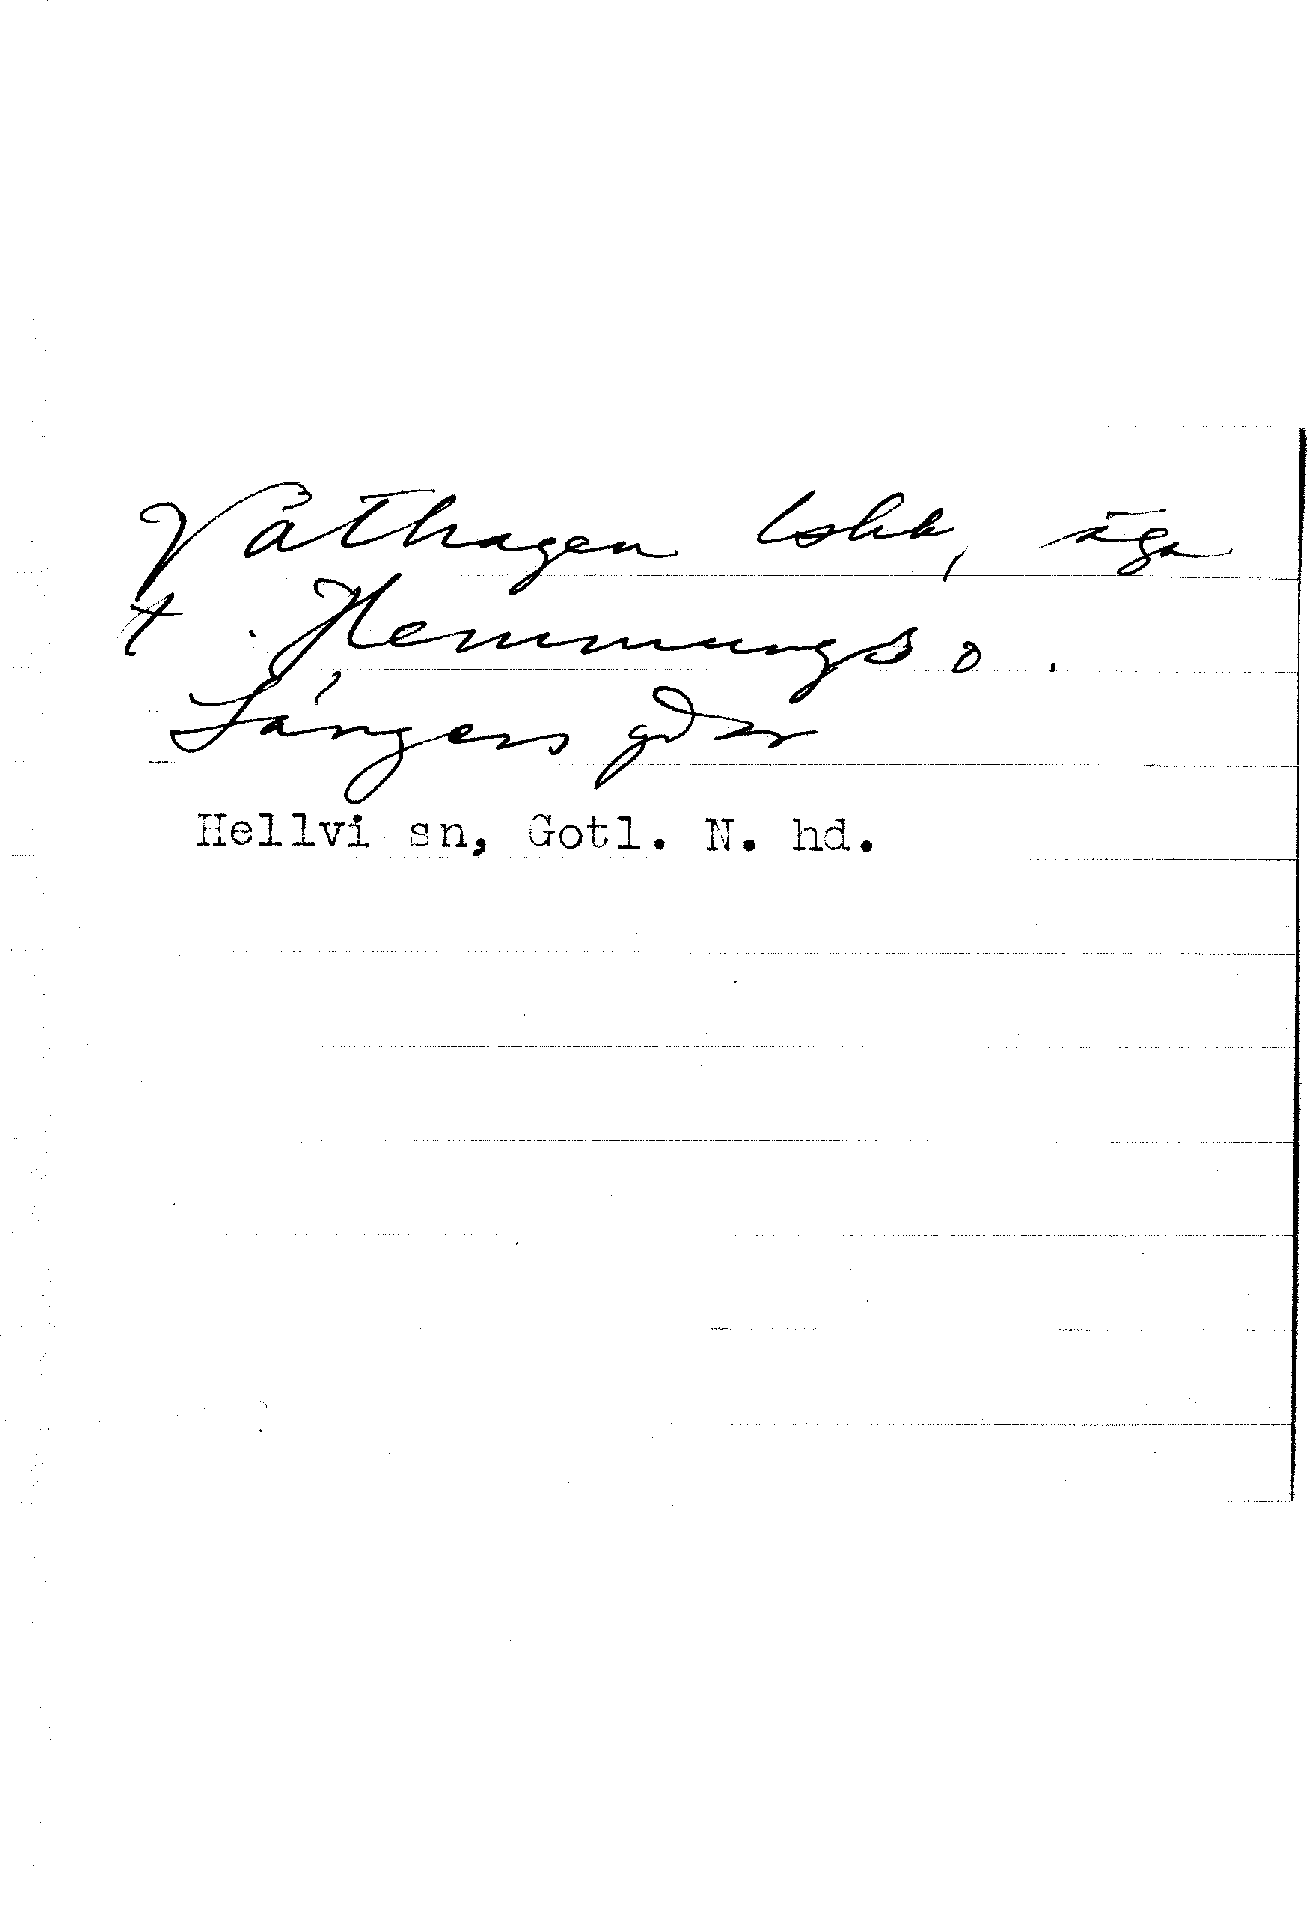 Våthagen bskk, äga
t. Hemmungs o.
Långers gdar
Hellvi sn, Gotl. N. hd.